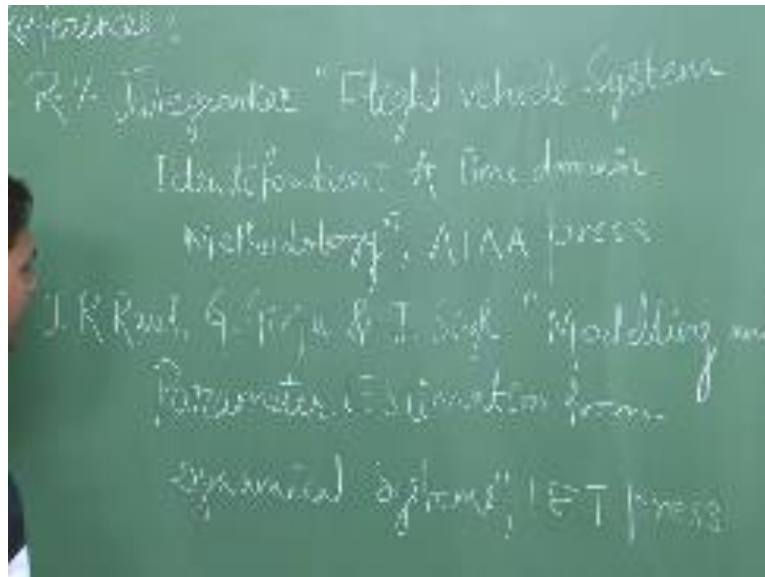 References:
"Flight vehicle System
A Time domain
Methodology", AIAA press
J. R Raol, G. Girija & J. Singh "Modelling
Parameter Estimation from
dynamical systems", IET press